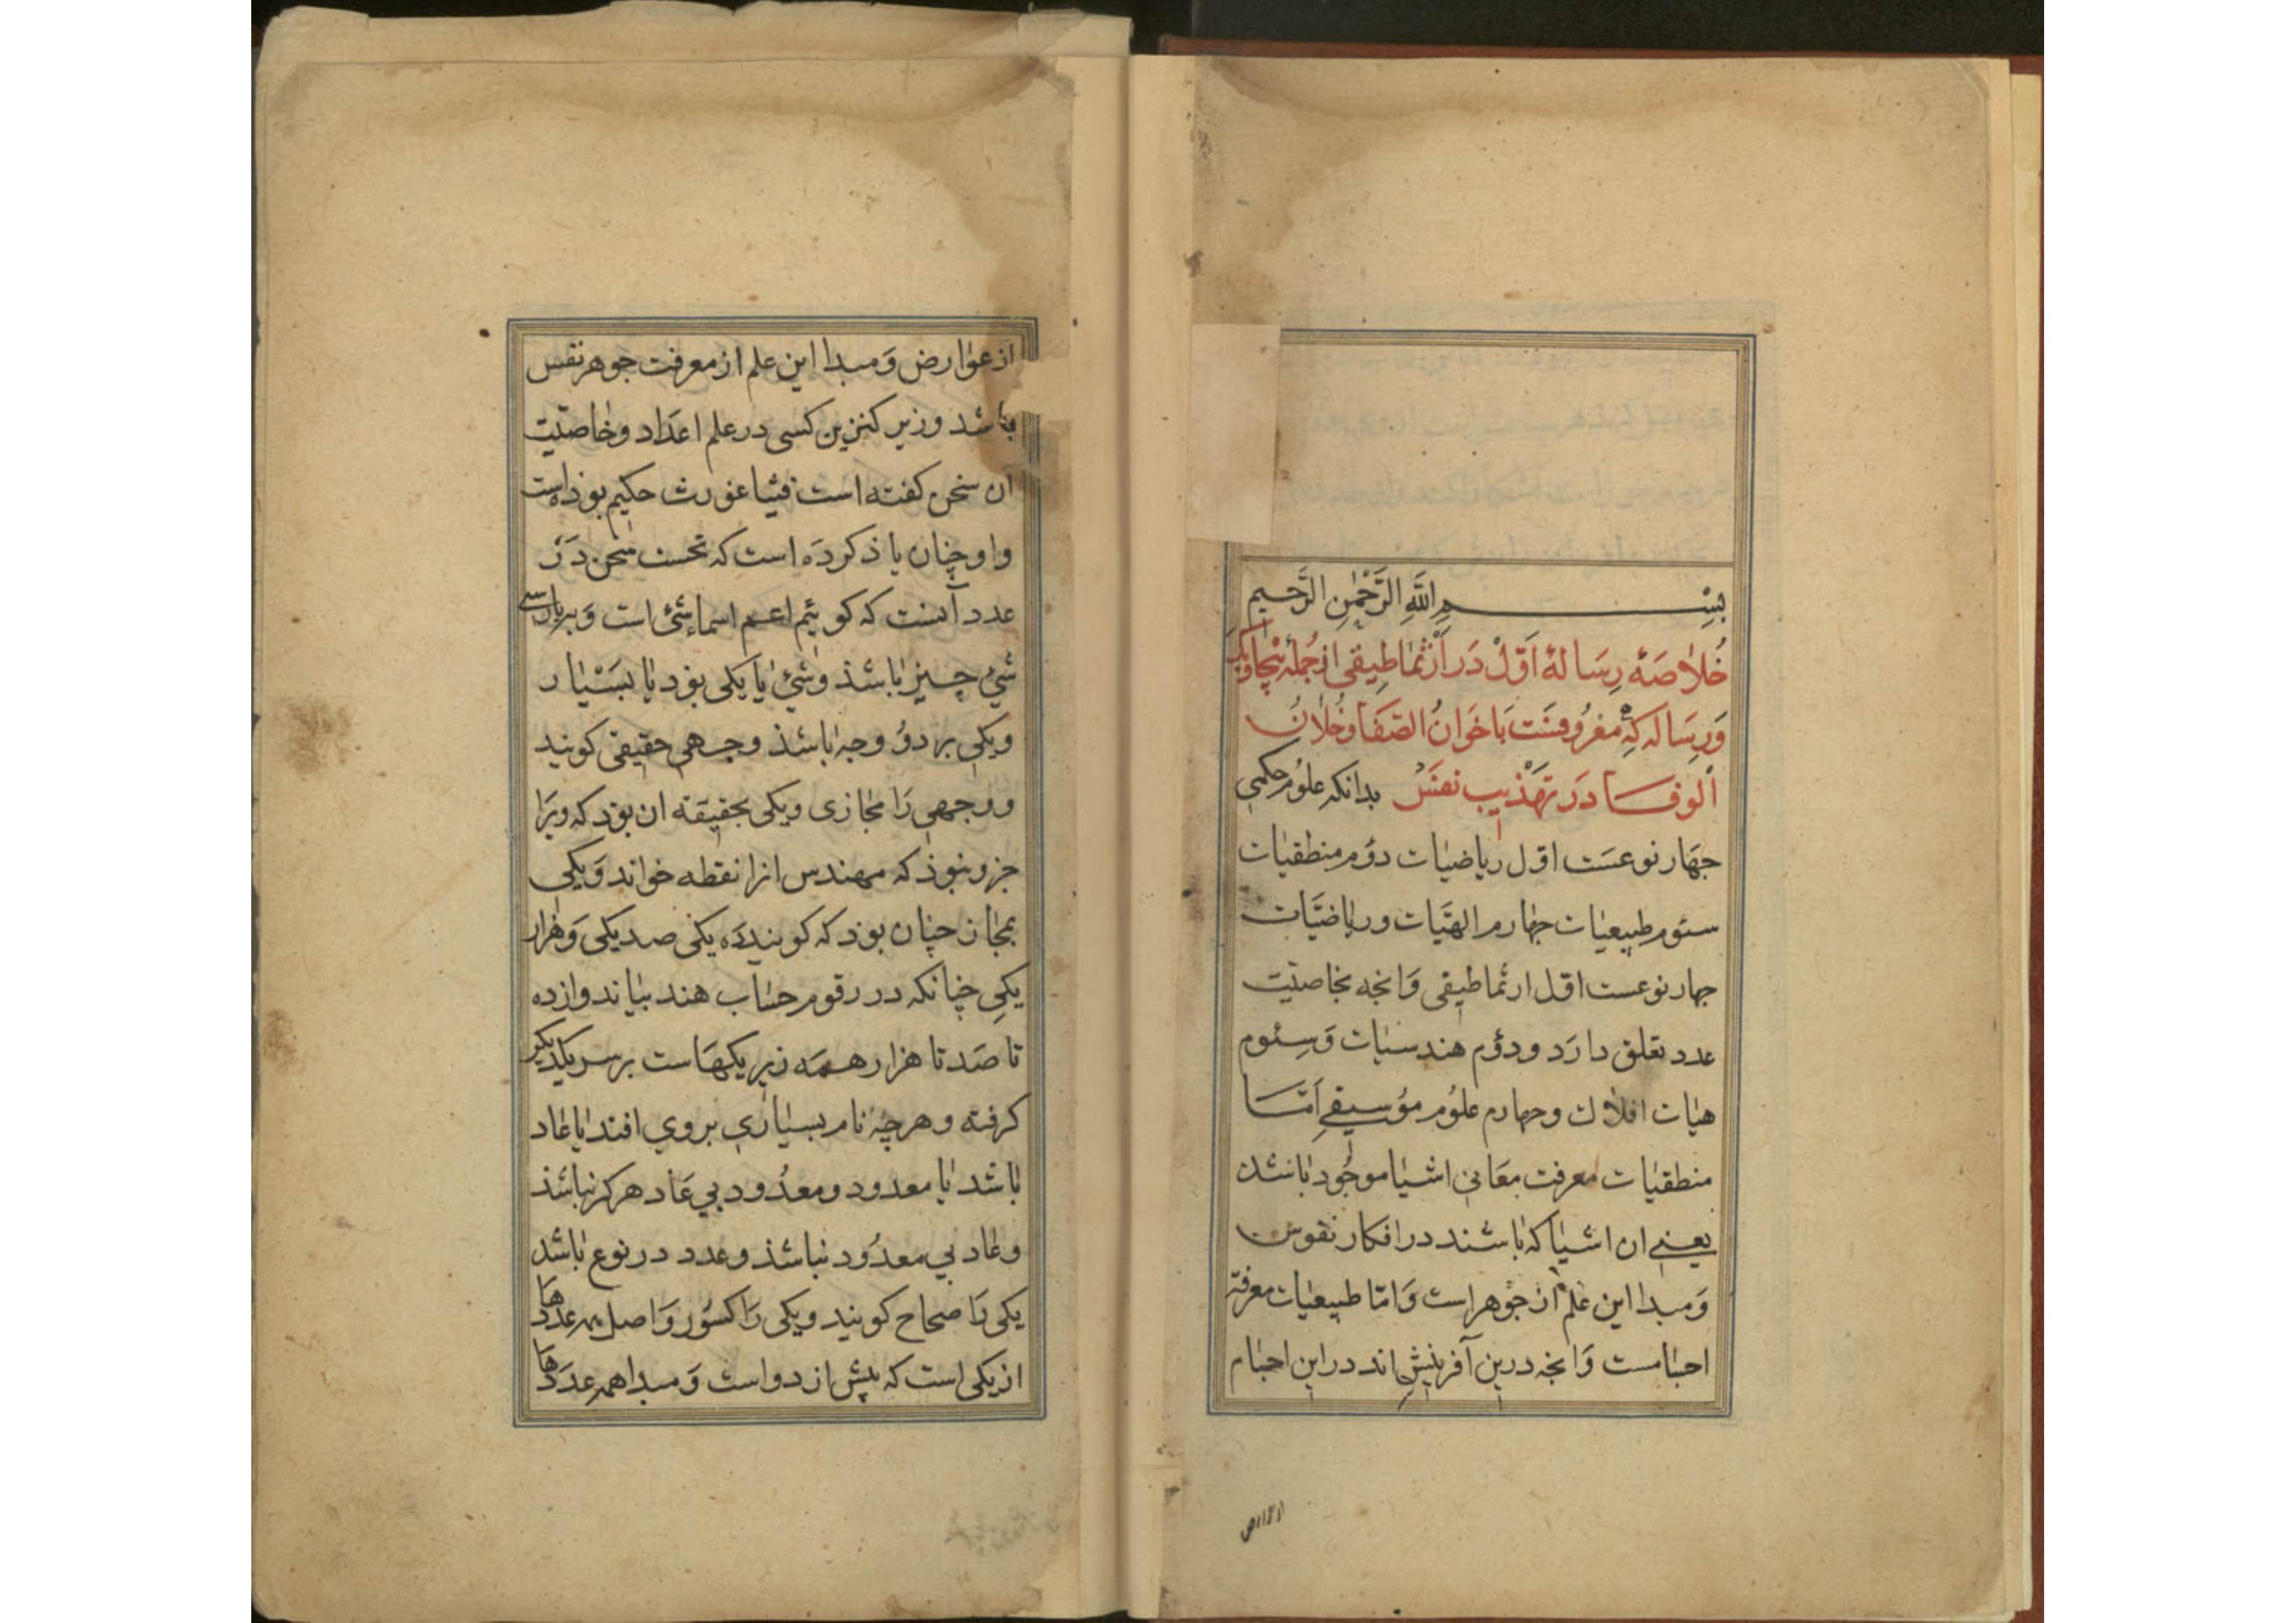 بسم الله الرحمن الرحیم
خلاصهٔ رسالهٔ اول در ارثماطیقی از جملهٔ پنجاه ویک
ورساله که معروفست باخوان الصفا وخلان
الوفا در تهذیب نفس بدانکه علوم حکمی
جهار نوعست اول ریاضیات دوم منطقیات
سئوم طبیعیات جهارم الهیات وریاضیات
جهار نوعست اول ارثماطیقی وانجه بخاصیت
عدد تعلق دارد ودوم هندسیات وسئوم
هیات افلاک وجهارم علوم موسیقی اما
منطقیات معرفت معانی اشیا موجود باشد
یعنی ان اشیا که باشند در افکار نفوس
ومبدا این علم از جوهر است واما طبیعیات معرفة
اجسامست وانجه درین آفرینش اند در این اجسام
ارلاارص
از عوارض ومبدا این علم از معرفت جوهر نفس
باشد وزیر کنزین کسی در علم اعداد وخاصیت
آن سخن کفته است فیثاغورث حکیم بوذه است
واو چنان یاذ کرده است که نخست سخن در
عدد آنست که کوئیم اعم اسماء شئ است وبپارسی
شئ چیز باشذ وشئ یا یکی بوذ یا بسیار
ویکی بر دو وجه باشذ وجهی حقیقی کویند
ووجهی را مجازی ویکی بحقیقة ان بوذ که ویرا
جزو نبوذ که مهندس انرا نقطه خواند ویکی
بمجاز چنان بوذ که کویند ده یکی صد یکی وهزار
یکی چنانکه در رقوم حساب هند بیاند وازده
تا صد تا هزار همه زیر یکهاست بر سر یکدیکر
کرفته وهرچه نام بسیاری بروی افتد یا عاد
باشد یا معدود ومعدود بی عاد هرکز نباشذ
وعاد بی معدود نباشذ وعدد در نوع باشد
یکی را صحاح کویند ویکی را کسور واصل همه عددها
از یکی است که پیش از دو است ومبدا همه عددها